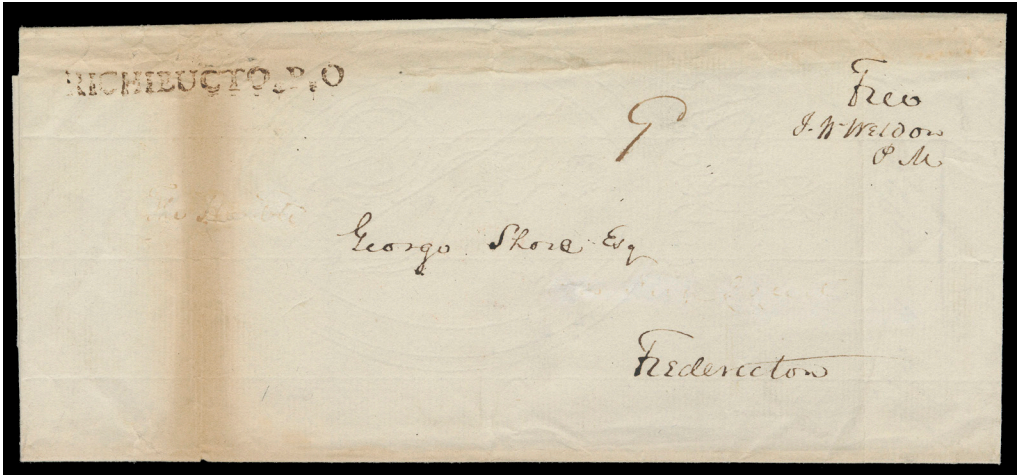 RICHIBUCTO. P. O
Free
J. W Weldon
P M
9
The Honble
George Shore Esq
Fredericton